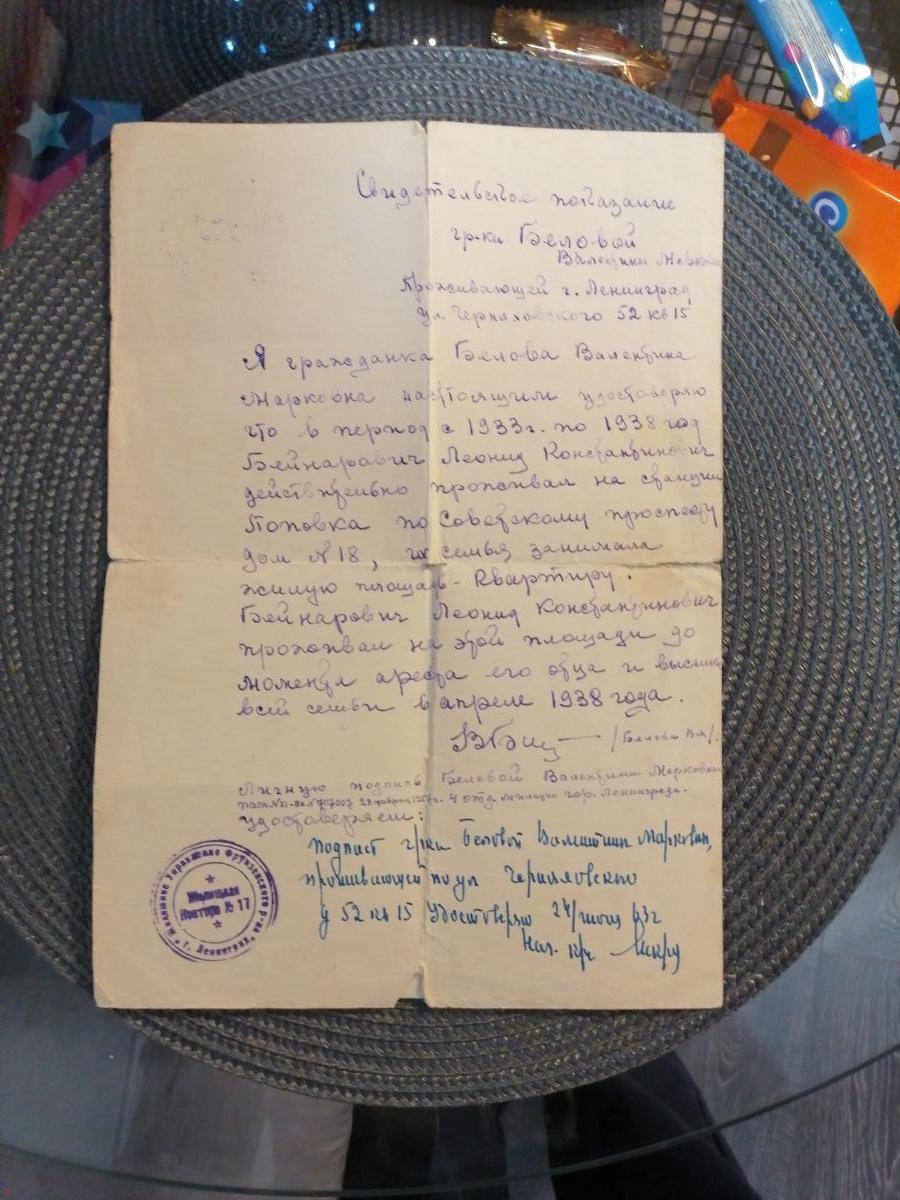 Свидетельское показание
гр-ки Беловой
Валентины Марковны
Проживающей г. Ленинград,
ул. Черняховского 52 кв 15
Я гражданка Белова Валентина
Марковна настоящим удостоверяю
что в период с 1933г. по 1938 год
Бейнаравич Леонид Константинович
действительно проживал на станции
Поповка по Советскому проспекту
дом № 18, их семья занимала
жилую площадь - квартиру.
Бейнарович Леонид Константинович
проживал на этой площади до
момента ареста его отца и высылки
всей семьи в апреле 1938 года.
/Белова Вм/.
Личную подпись Беловой Валентины Марковны
4 отд. милиции гор. Ленинграда.
удостоверяем:
подпись гр-ки Беловой Валентины Марковны,
проживающей по ул Черняховского
д 52 кв 15 Удостоверяю 24/ 63г
Нач.
Жилищное Управление Фрунзенского р-на
г. Ленинград
Жилищная
Контора № 17